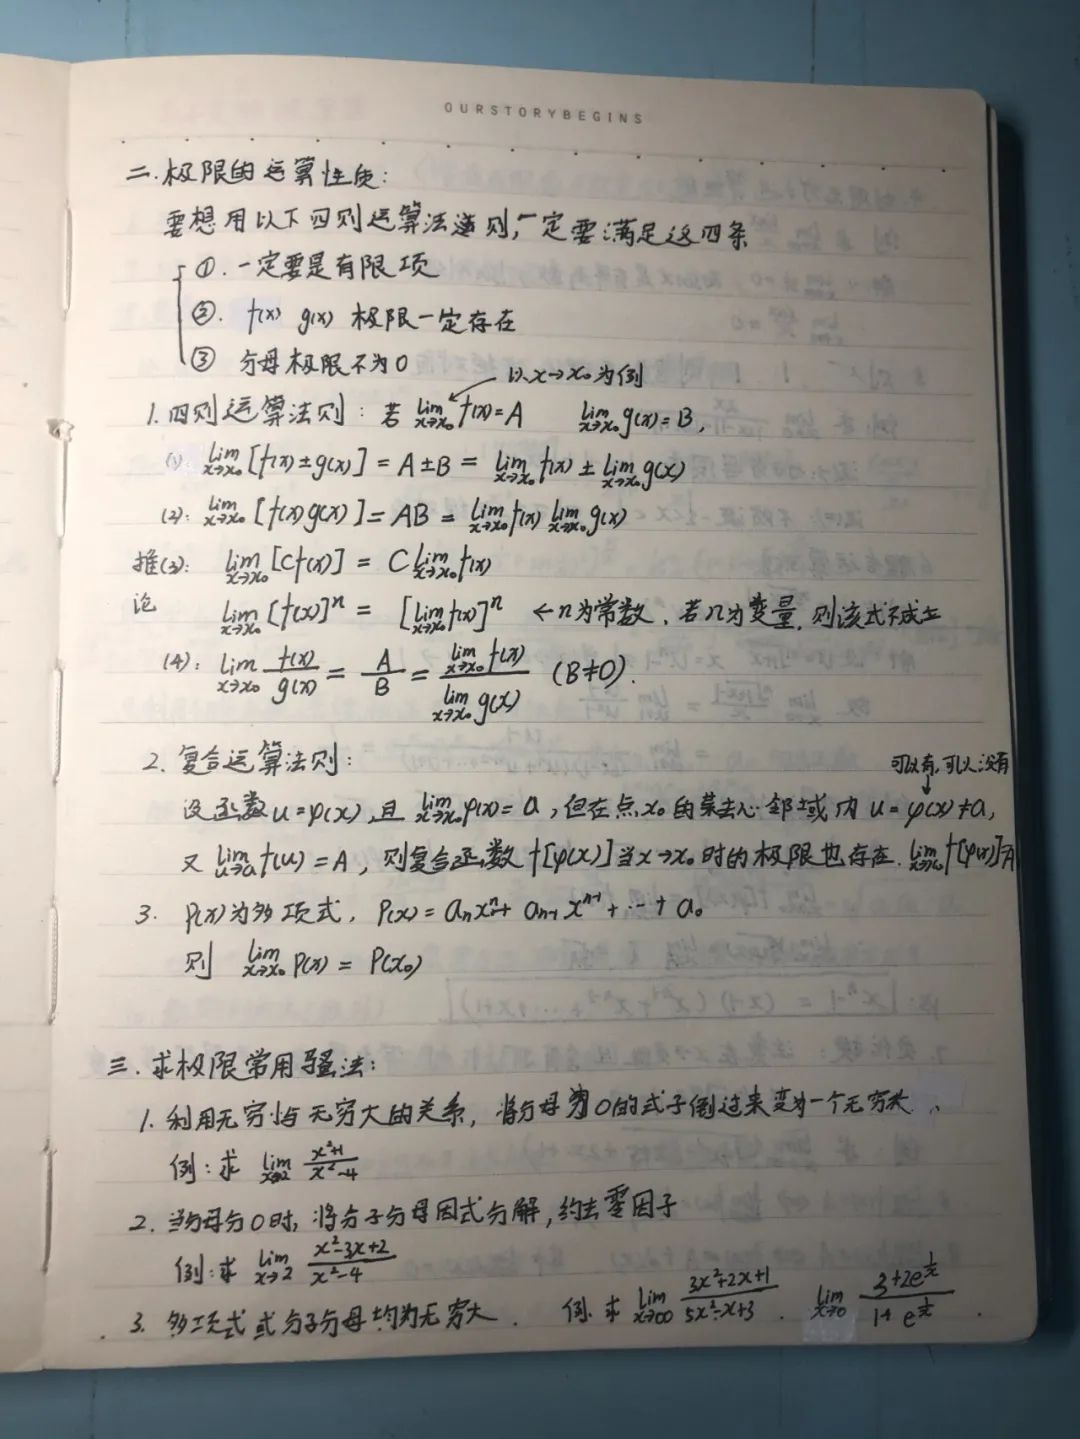 OURSTORYBEGINS
二.极限的运算性质:
要想用以下四则运算法则,一定要满足这四条
①.一定要是有限项
②. f(x) g(x) 极限一定存在
③ 分母极限不为0
以x→x₀为例
1.四则运算法则: 若 lim_{x→x₀} f(x)=A lim_{x→x₀} g(x)=B,
(1): lim_{x→x₀} [f(x)±g(x)] = A±B = lim_{x→x₀} f(x) ± lim_{x→x₀} g(x)
(2): lim_{x→x₀} [f(x)g(x)] = AB = lim_{x→x₀} f(x) lim_{x→x₀} g(x)
推(3): lim_{x→x₀} [Cf(x)] = C lim_{x→x₀} f(x)
论 lim_{x→x₀} [f(x)]ⁿ = [lim_{x→x₀} f(x)]ⁿ ←n为常数,若n为变量,则该式不成立
(4): lim_{x→x₀} f(x)/g(x) = A/B = lim_{x→x₀} f(x) / lim_{x→x₀} g(x) (B≠0).
2.复合运算法则:
可以有,可以没有
设函数u=φ(x),且 lim_{x→x₀} φ(x)=a,但在点x₀的某去心邻域内 u=φ(x)≠a,
又 lim_{u→a} f(u)=A, 则复合函数f[φ(x)]当x→x₀时的极限也存在. lim_{x→x₀} f[φ(x)]=A
3. P(x)为多项式, P(x)=aₙxⁿ+ aₙ₋₁xⁿ⁻¹+…+a₀
则 lim_{x→x₀} P(x) = P(x₀)
三.求极限常用骚法:
1.利用无穷小与无穷大的关系,将分母为0的式子倒过来变为一个无穷大
例:求 lim_{x→2} (x²+1)/(x²-4)
2.当分母为0时,将分子分母因式分解,约去零因子
例:求 lim_{x→2} (x²-3x+2)/(x²-4)
3.多项式或分子分母均为无穷大. 例.求 lim_{x→∞} (3x²+2x+1)/(5x²-x+3) . lim_{x→0} (3+2e^{1/x})/(1+e^{1/x}) .